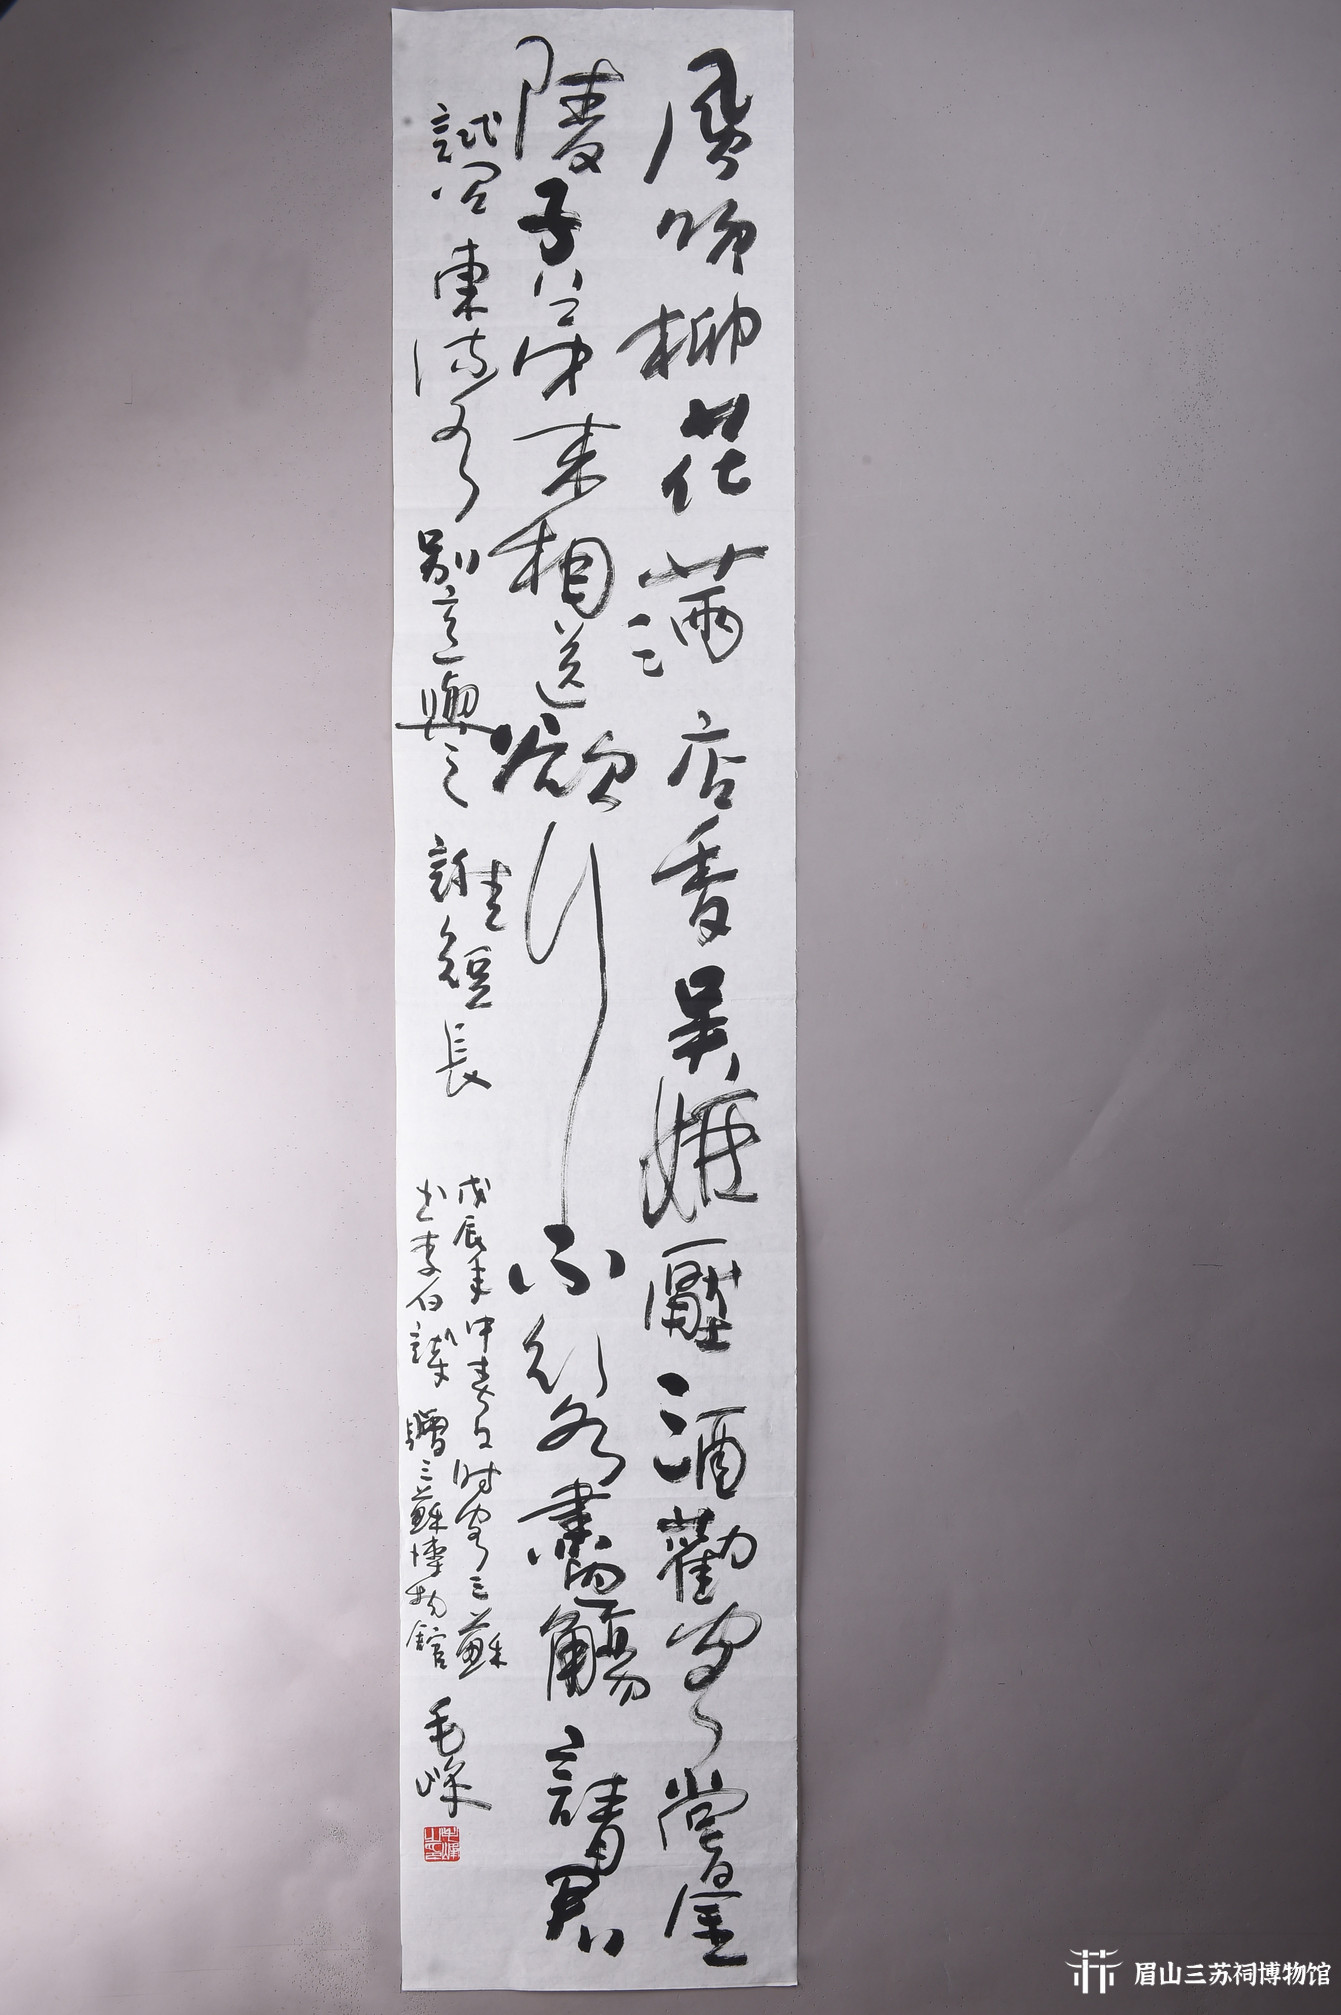 風吹柳花滿店香吳姬壓酒勸客嘗金
陵子弟來相送欲行不行各盡觴請君
試問東流水別意與之誰短長
戊辰年中春日时客三蘇
书李白詩贈三蘇博物館
毛峰
眉山三苏祠博物馆